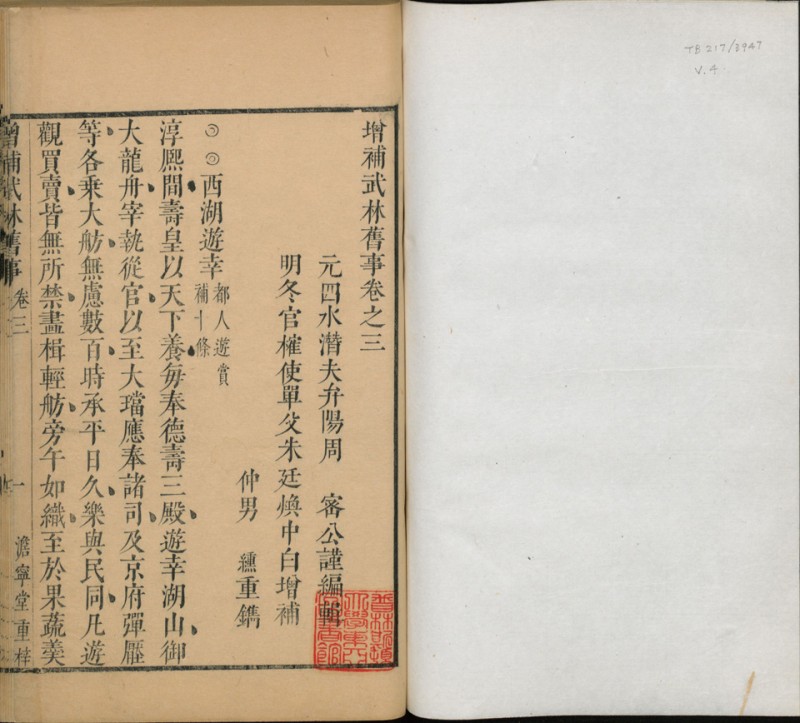 TB 217/3947
V. 4
增補武林舊事卷之三
元四水潛夫弁陽周　密公謹編輯
明冬官榷使單父朱廷煥中白增補
仲男　纁重鐫
西湖遊幸都人遊賞補十條
淳熙間壽皇以天下養每奉德壽三殿遊幸湖山御
大龍舟宰執從官以至大璫應奉諸司及京府彈壓
等各乘大舫無慮數百時承平日久樂與民同凡遊
觀買賣皆無所禁畫楫輕舫旁午如織至於果蔬羹
增補武林舊事　卷三　一　澹寧堂重梓